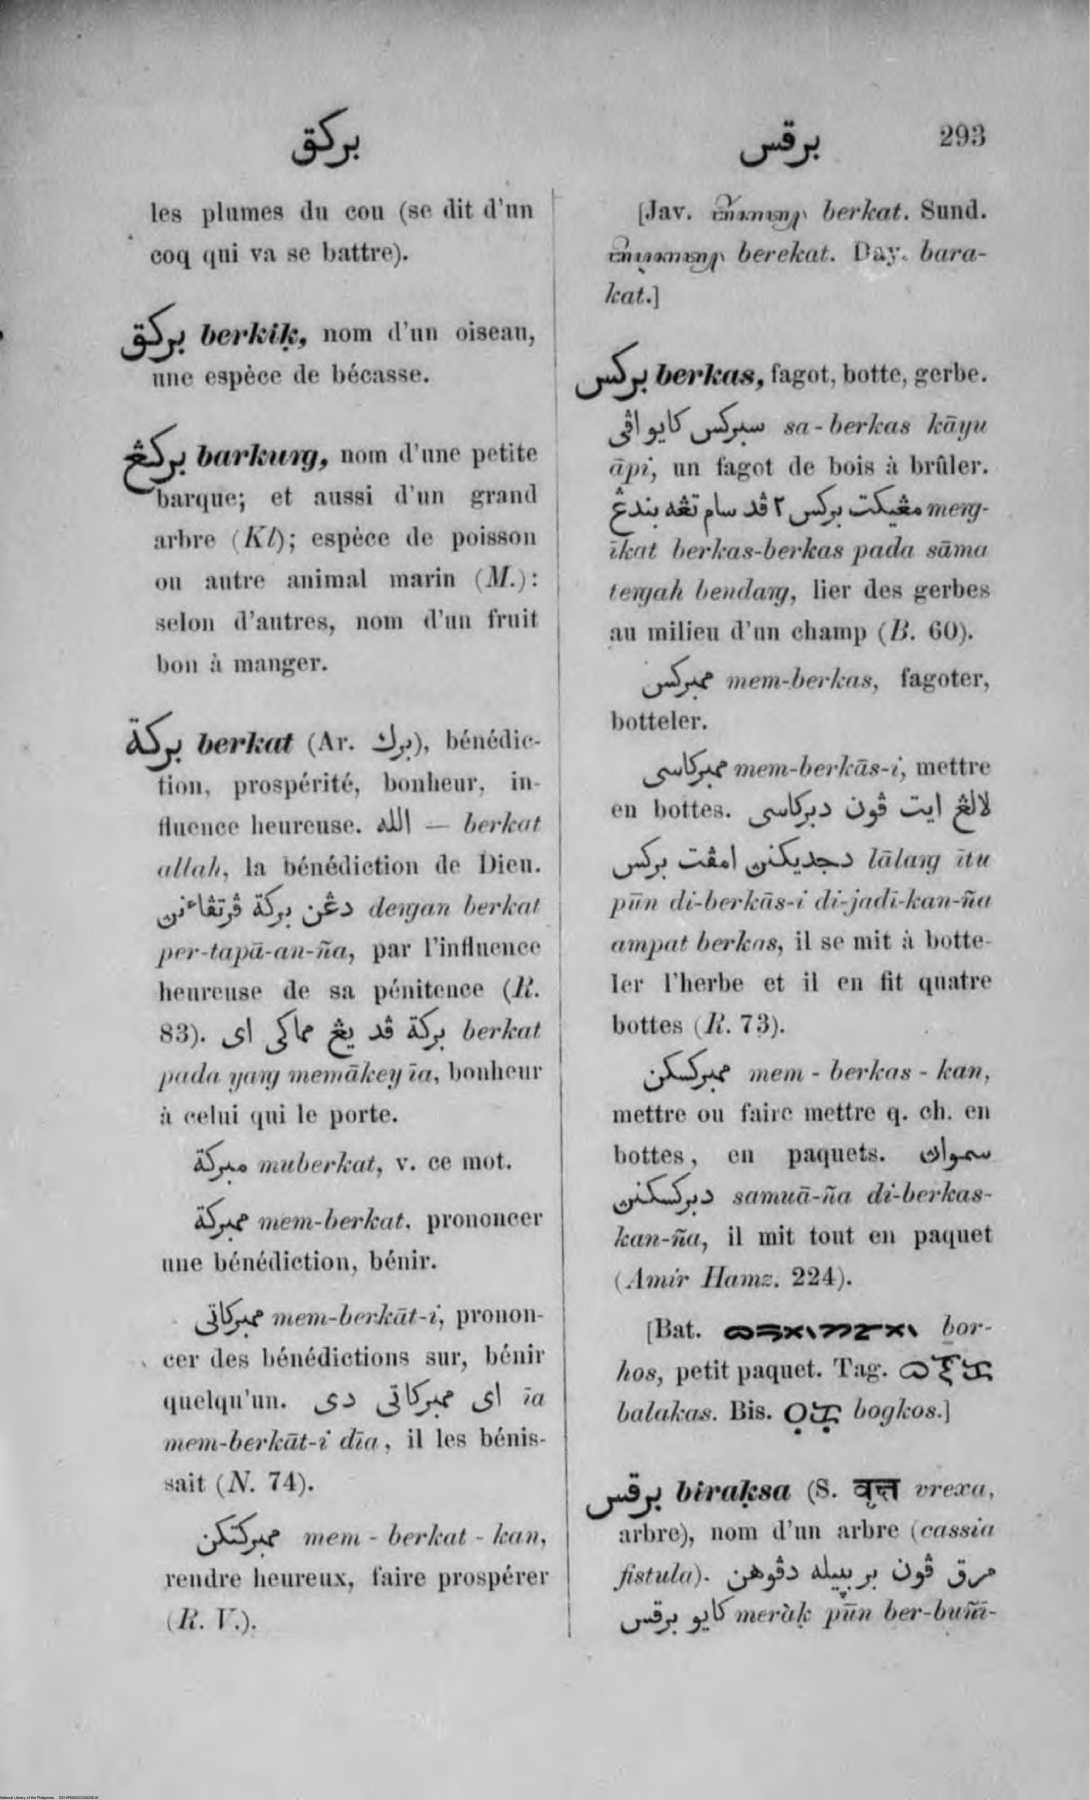 بركق
برقس
293
les plumes du cou (se dit d'un
coq qui va se battre).
بركق berkiḳ, nom d'un oiseau,
une espèce de bécasse.
بركڠ barkuṉg, nom d'une petite
barque; et aussi d'un grand
arbre (Kl); espèce de poisson
ou autre animal marin (M.):
selon d'autres, nom d'un fruit
bon à manger.
بركة berkat (Ar. برك), bénédic-
tion, prospérité, bonheur, in-
fluence heureuse. الله — berkat
allah, la bénédiction de Dieu.
دڠن بركة ڤرتڤاءنن deṉgan berkat
per-tapā-an-ña, par l'influence
heureuse de sa pénitence (R.
83). بركة ڤد يڠ مماكى اى berkat
pada yaṉg memākey īa, bonheur
à celui qui le porte.
مبركة muberkat, v. ce mot.
ممبركة mem-berkat, prononcer
une bénédiction, bénir.
ممبركاتى mem-berkāt-i, pronon-
cer des bénédictions sur, bénir
quelqu'un. اى ممبركاتى دى īa
mem-berkāt-i dīa, il les bénis-
sait (N. 74).
ممبركتكن mem-berkat-kan,
rendre heureux, faire prospérer
(R. V.).
[Jav. berkat. Sund.
berekat. Day. bara-
kat.]
بركس berkas, fagot, botte, gerbe.
سبركس كايو اڤى sa-berkas kāyu
āpi, un fagot de bois à brûler.
مڠيكت بركس ٢ ڤد سام تڠه بندڠ meṉg-
īkat berkas-berkas pada sāma
teṉgah bendaṉg, lier des gerbes
au milieu d'un champ (B. 60).
ممبركس mem-berkas, fagoter,
botteler.
ممبركاسى mem-berkās-i, mettre
en bottes. لالڠ ايت ڤون دبركاسى
دجديكنن امڤت بركس lālaṉg ītu
pūn di-berkās-i di-jadī-kan-ña
ampat berkas, il se mit à botte-
ler l'herbe et il en fit quatre
bottes (R. 73).
ممبركسكن mem-berkas-kan,
mettre ou faire mettre q. ch. en
bottes, en paquets. سموان
دبركسكنن samuā-ña di-berkas-
kan-ña, il mit tout en paquet
(Amir Hamz. 224).
[Bat. bor-
hos, petit paquet. Tag.
balakas. Bis. bogkos.]
برقس biraḳsa (S. वृक्ष vrexa,
arbre), nom d'un arbre (cassia
fistula). مرق ڤون بر دڤوهن
كايو برقس merāḳ pūn ber-